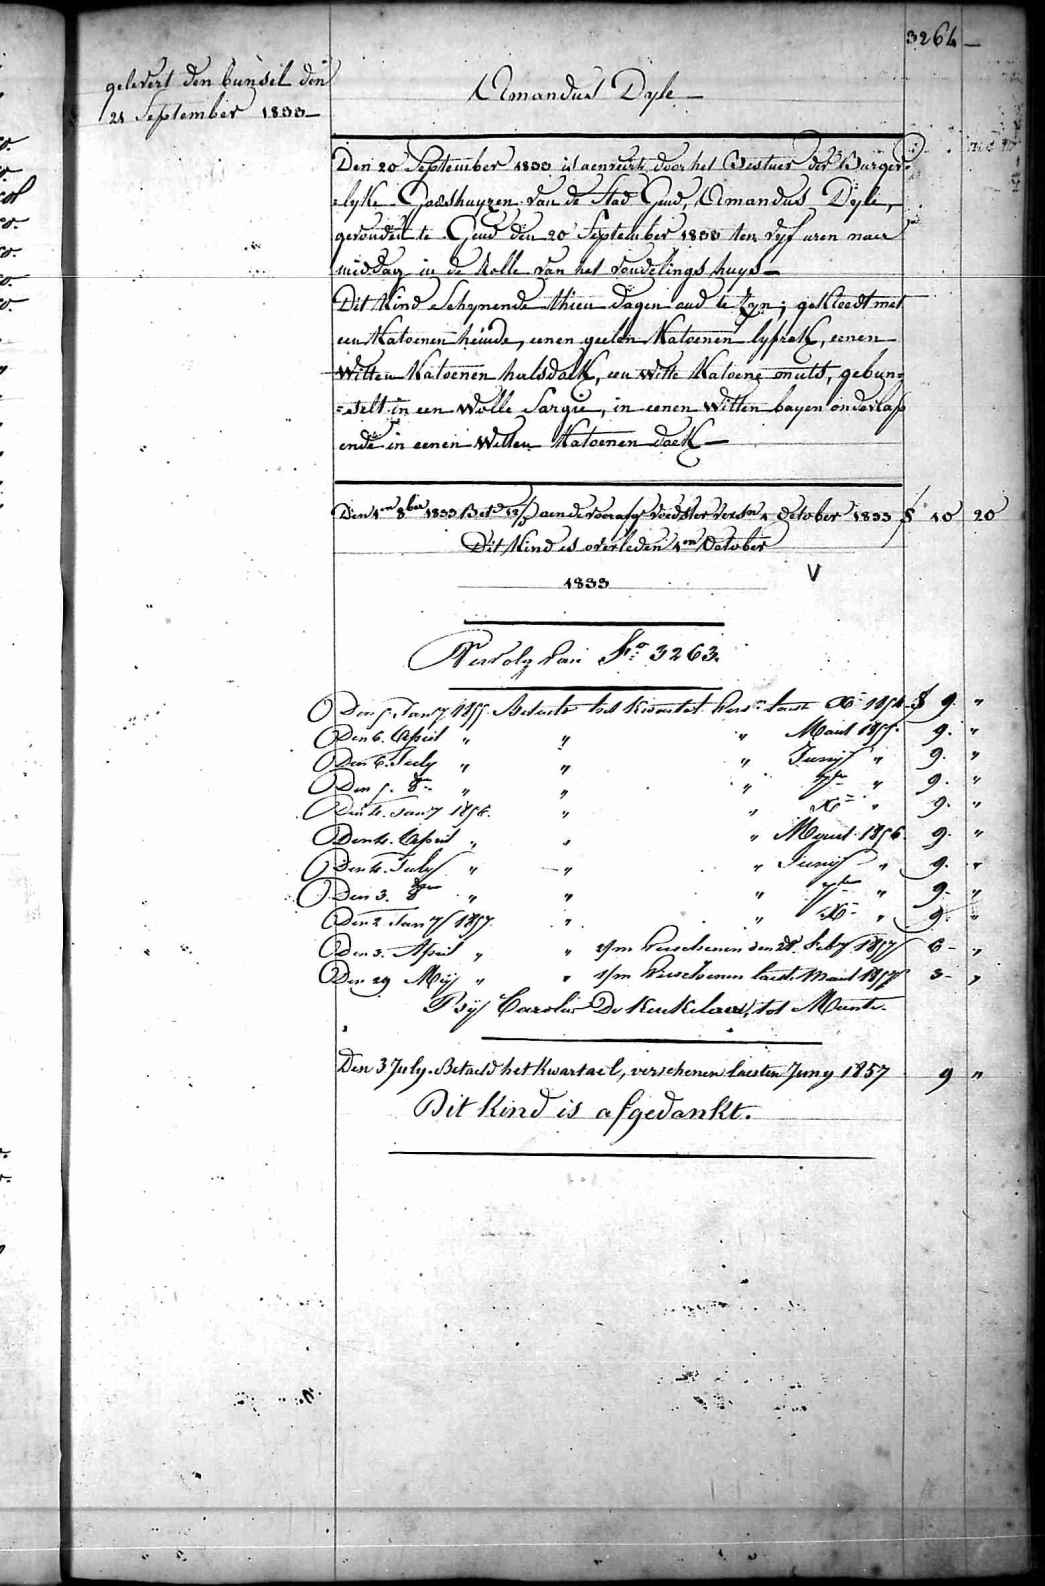 3264
gelevert den bunsel den
21 September 1833
Amandus Dyle
Den 20 September 1833 is aenveert door het Bestuer der Burger
lyke Godshuyzen van de Stad Gend, Amandus Dyle,
gevonden te Gend den 20 September 1833 ten vyf uren naer
middag in de Rolle van het vondelings huys
Dit Kind schynende thien dagen oud te zyn; gekleedt met
een Katoenen hemde, eenen geelen Katoenen lyfrok, eenen
Witten Katoenen halsdoek, een Witte Katoene muts, gebun-
=selt in een Wolle Sargie, in eenen Witten bayen onderlap
ende in eenen Witten Katoenen doek
Den 4en 8ber 1833 aen de voedster October 1833 10 20
Dit Kind is overleden 4en October
1833
Vervolg van Fo 3263.
Den 5. Jany 1855. Betaelt het Kwartael Vers. laest Xr 1854 9. "
Den 6. April " " " Maert 1855. 9. "
Den 6. July " " " Junij " 9. "
Den 5. 8er " " " 7ber " 9. "
Den 4. Jany 1856. " " Xr " 9. "
Den 4. April " " " Maert 1856 9. "
Den 4. July " " " Junij " 9. "
Den 3. 8ber " " " 7ber " 9. "
Den 2 Jany 1857. " " Xr " 9. "
Den 3. April " " 2/m verschenen den 28. Feby 1857 6 "
Den 29 Mey " " 1/m verschenen laest Maert 1857 3 "
Bij Carolus De Keukelaere, tot Meente.
Den 3 July. Betaeld het Kwartael, verschenen laesten Juny 1857 9 "
Dit Kind is afgedankt.